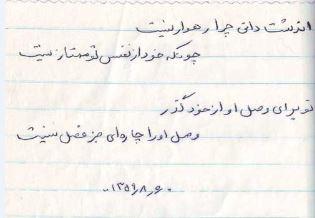 اندشت دانی چرا رهوار نیست
چونکه خود از نفس تو ممتاز نیست
تو برای وصل او از خود گذر
وصل او را چاره‌ای جز فصل نیست
۶ر۸ر۱۳۵۹